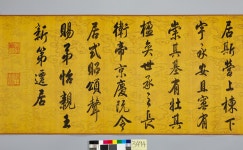 居斯營上棟下
宇永安且寧有
崇其基有壯其
楹奕世承之長
衛帝京慶阮令
居式昭頌聲
賜弟怡親王
新第遷居